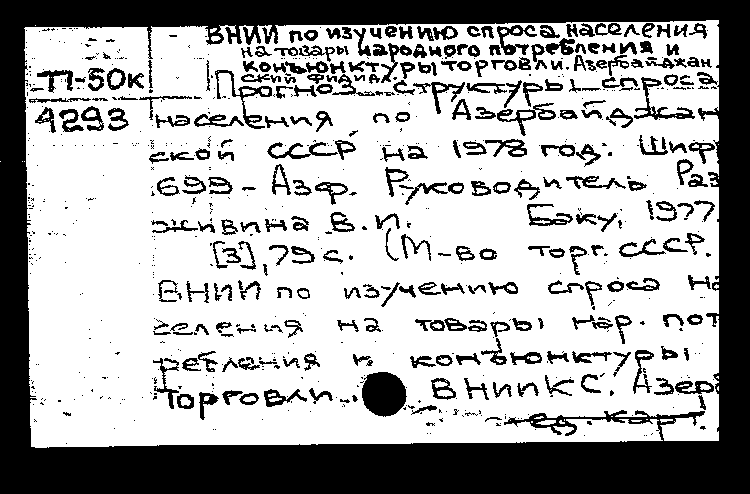 ВНИИ по изучению спроса населения
на товары народного потребления и
конъюнктуры торговли. Азербайджан.
ский филиал.
П-50к
Прогноз структуры спроса
4293
населения по Азербайджан
ской СССР на 1978 год: Шифр
699-Азф. Руководитель Раз
живина В.И. Баку, 1977.
[3], 79 с. (М-во торг. СССР.
ВНИИ по изучению спроса на
селения на товары нар. пот
ребления и конъюнктуры
торговли. ВНИИКС. Азерб
ед. карт.